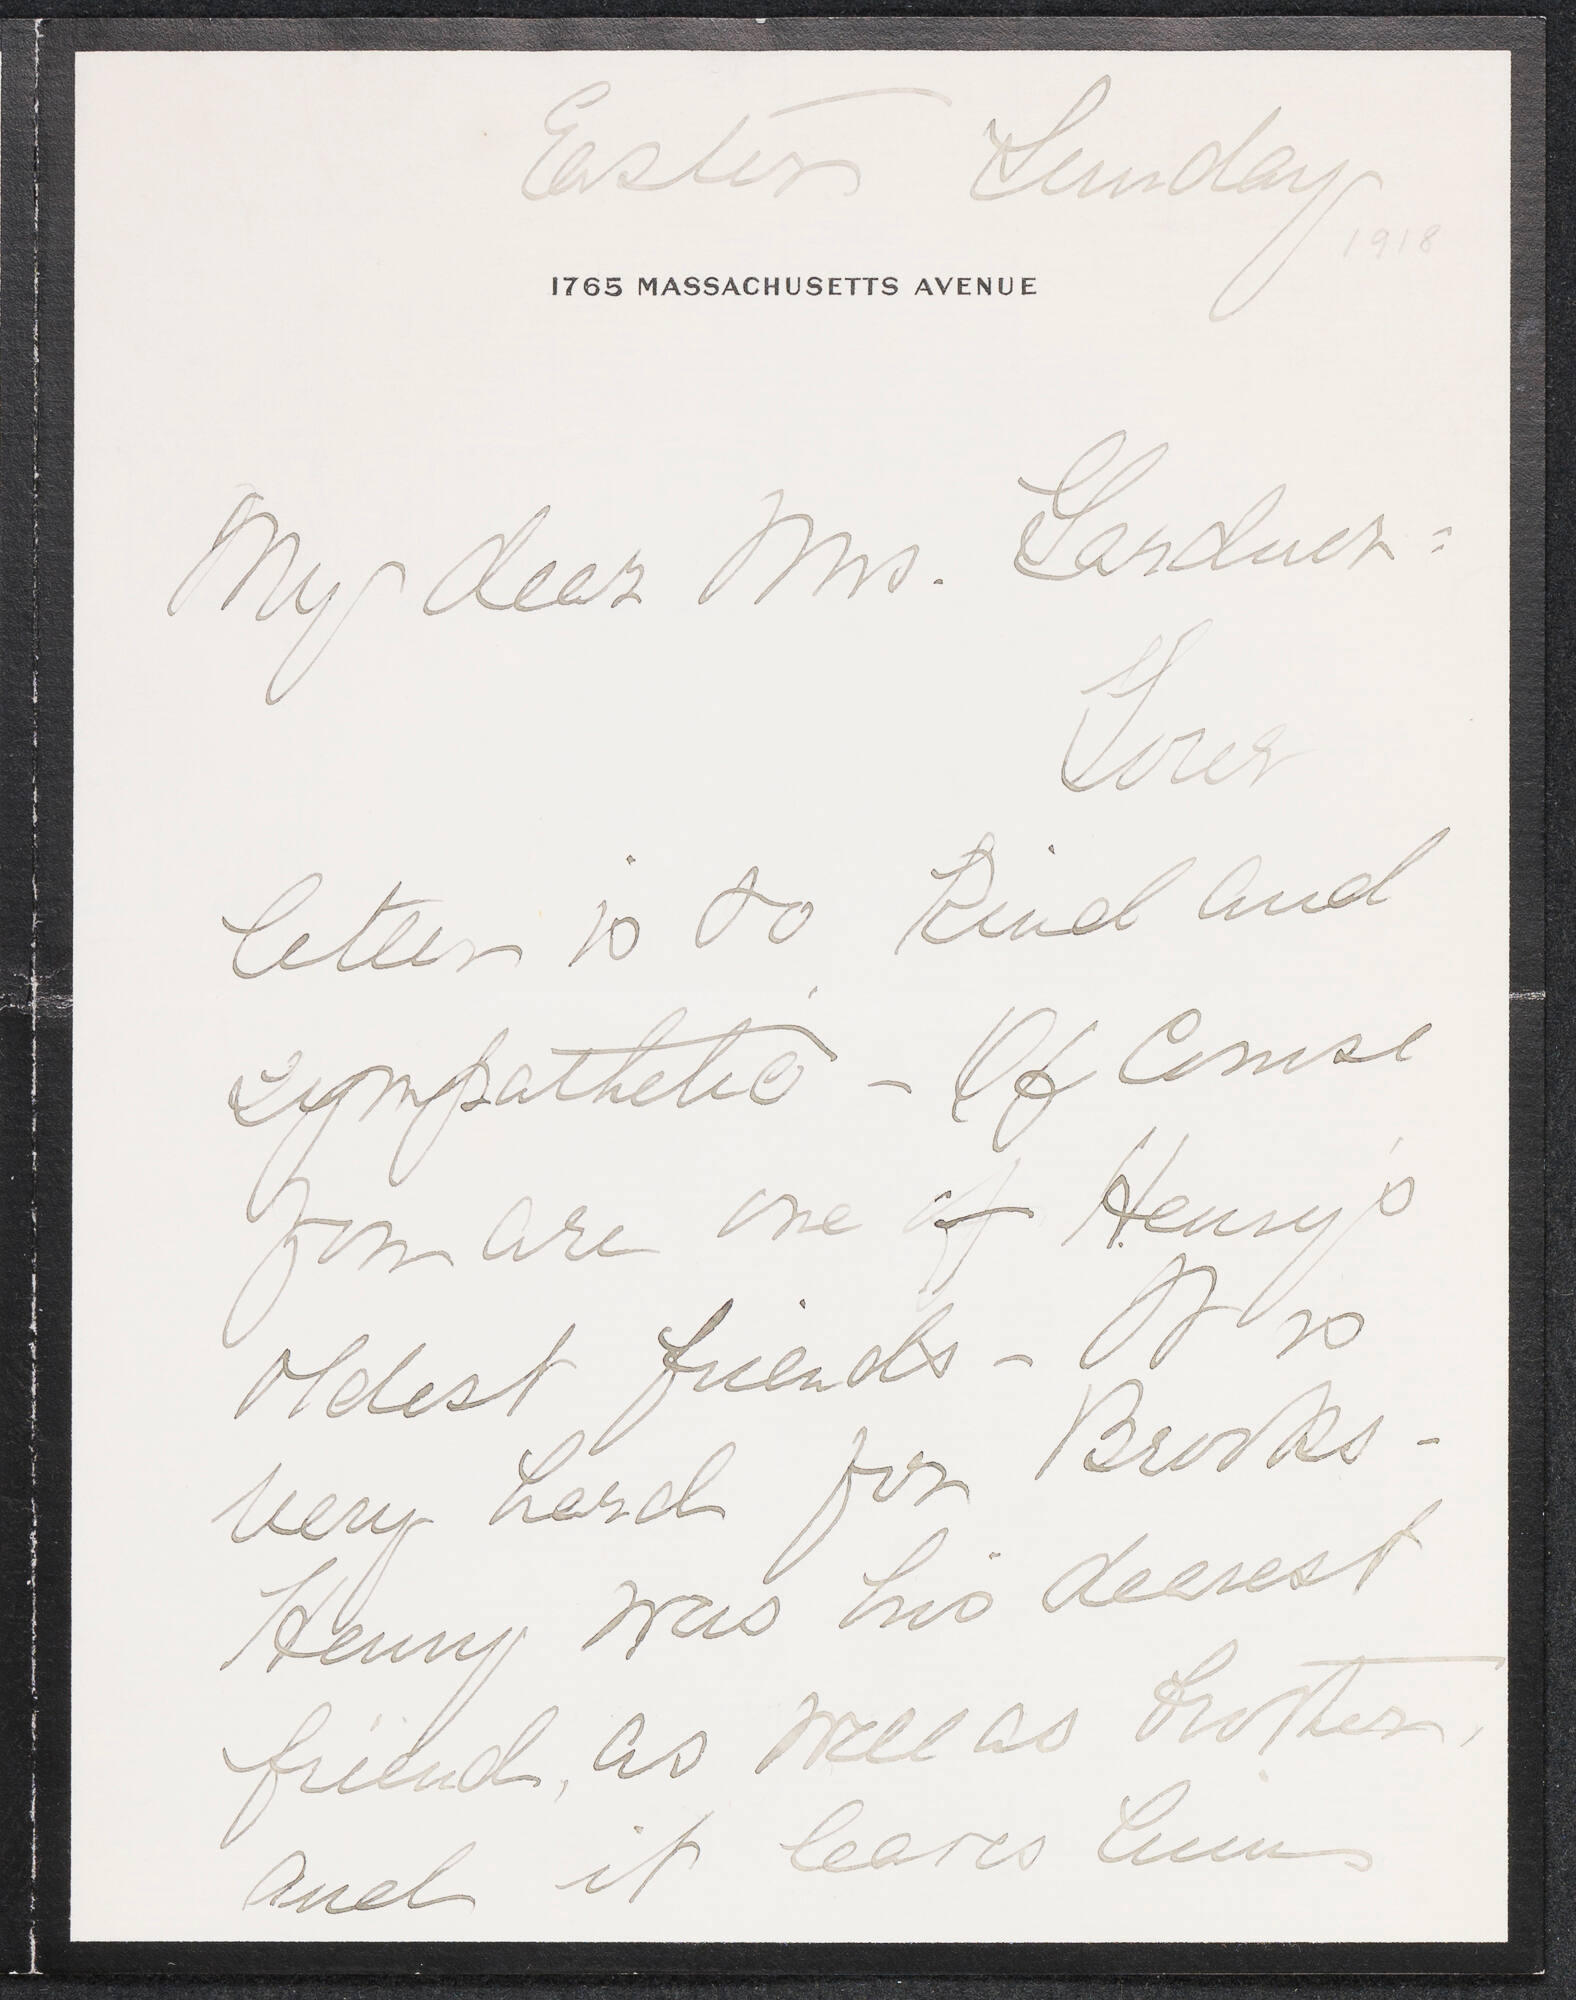 Easter Sunday
1918
1765 MASSACHUSETTS AVENUE
My dear Mrs. Gardner =
Your
letter is so kind and
sympathetic - Of course
you are one of Henry's
oldest friends - It is
very hard for Brooks -
Henry was his dearest
friend, as well as brother,
and it leaves him